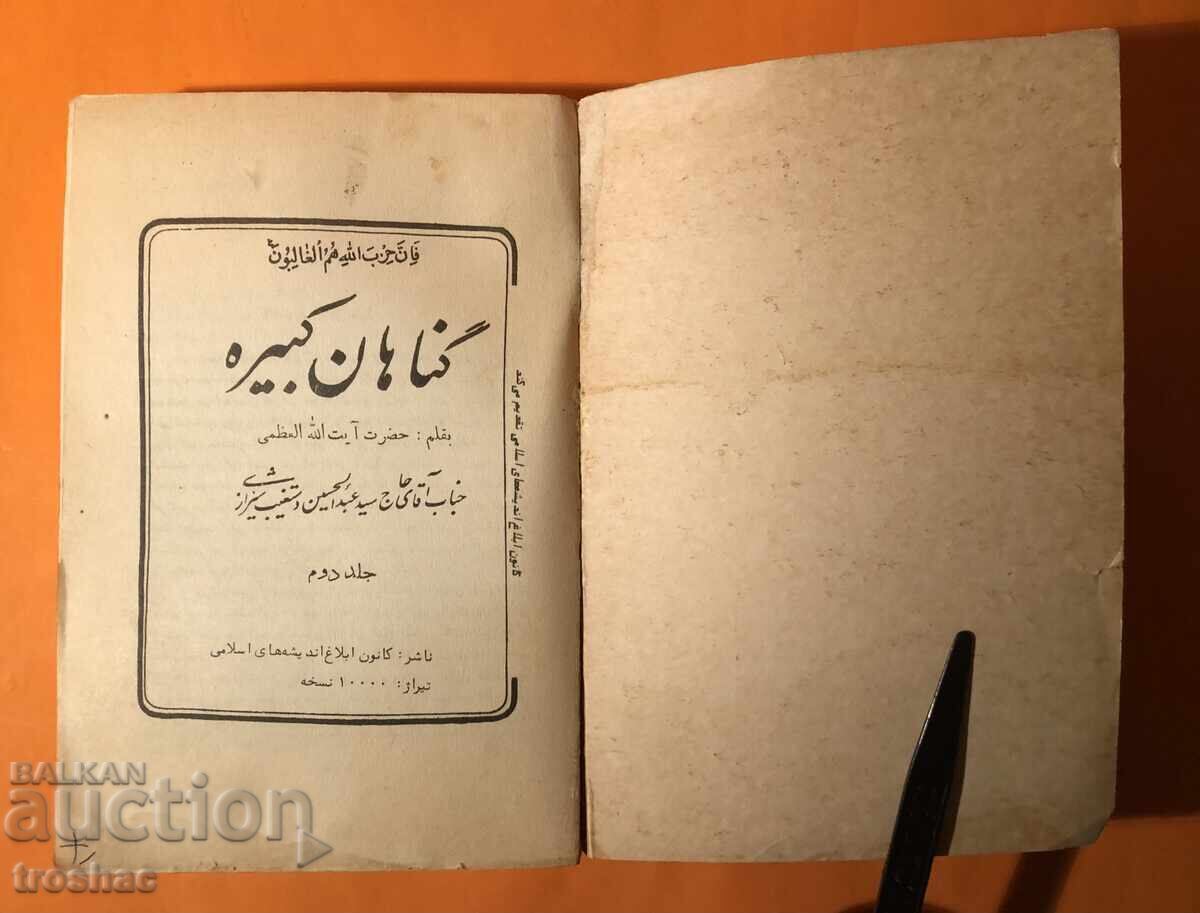 فَاِنَّ حِزْبَ اللهِ هُمُ الْغالِبُونَ
گناهان کبیره
بقلم : حضرت آیت الله العظمی
جناب آقای حاج سید عبدالحسین دستغیب شیرازی
جلد دوم
ناشر: کانون ابلاغ اندیشه‌های اسلامی
تیراژ: ۱۰۰۰۰ نسخه
کانون ابلاغ اندیشه‌های اسلامی تقدیم می‌کند
BALKAN
auction
troshac